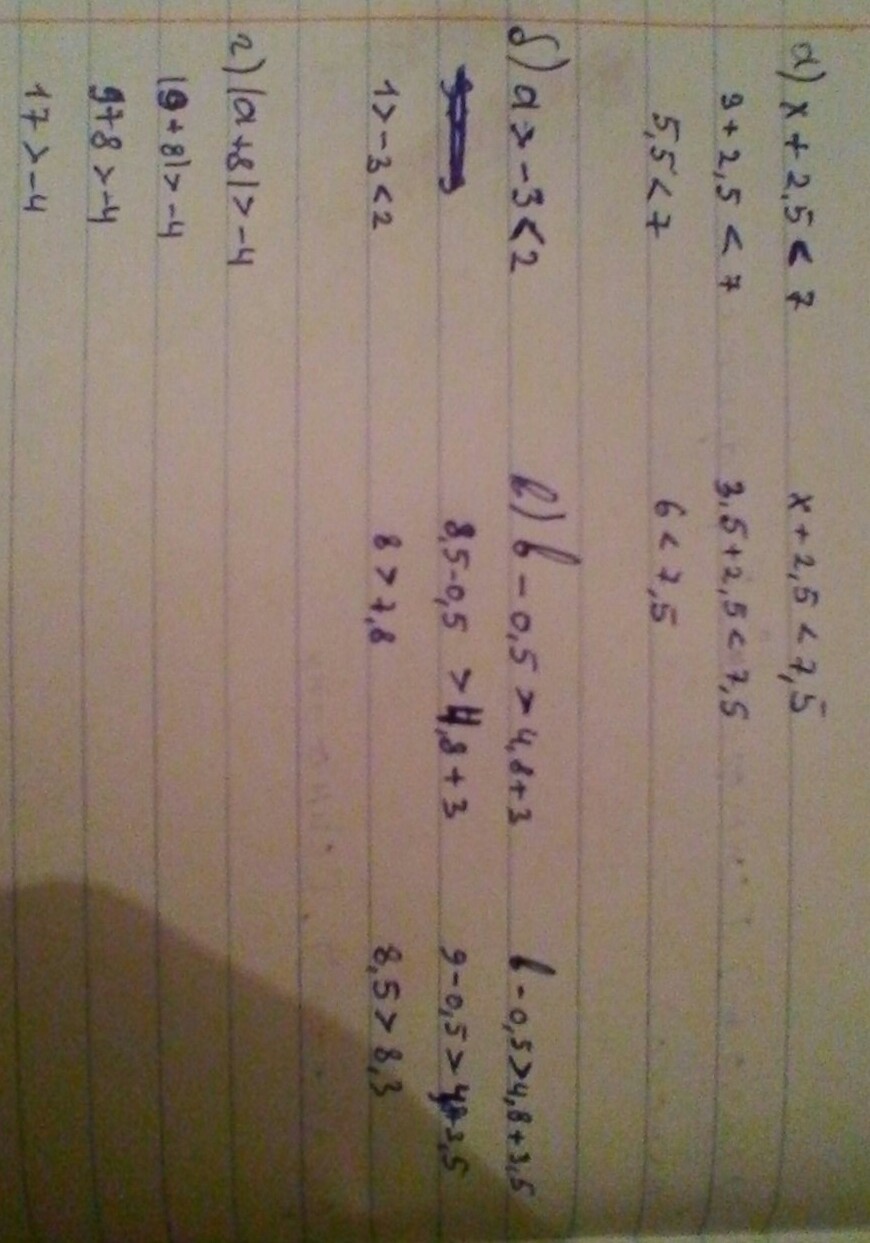 а) x + 2,5 < 7
3 + 2,5 < 7
5,5 < 7
x + 2,5 < 7,5
3,5 + 2,5 < 7,5
6 < 7,5
б) a > -3 < 2
1 > -3 < 2
в) b - 0,5 > 4,8 + 3
8,5 - 0,5 > 4,8 + 3
8 > 7,8
b - 0,5 > 4,8 + 3,5
9 - 0,5 > 4,8 + 3,5
8,5 > 8,3
г) |a + 8| > -4
|9 + 8| > -4
9 + 8 > -4
17 > -4